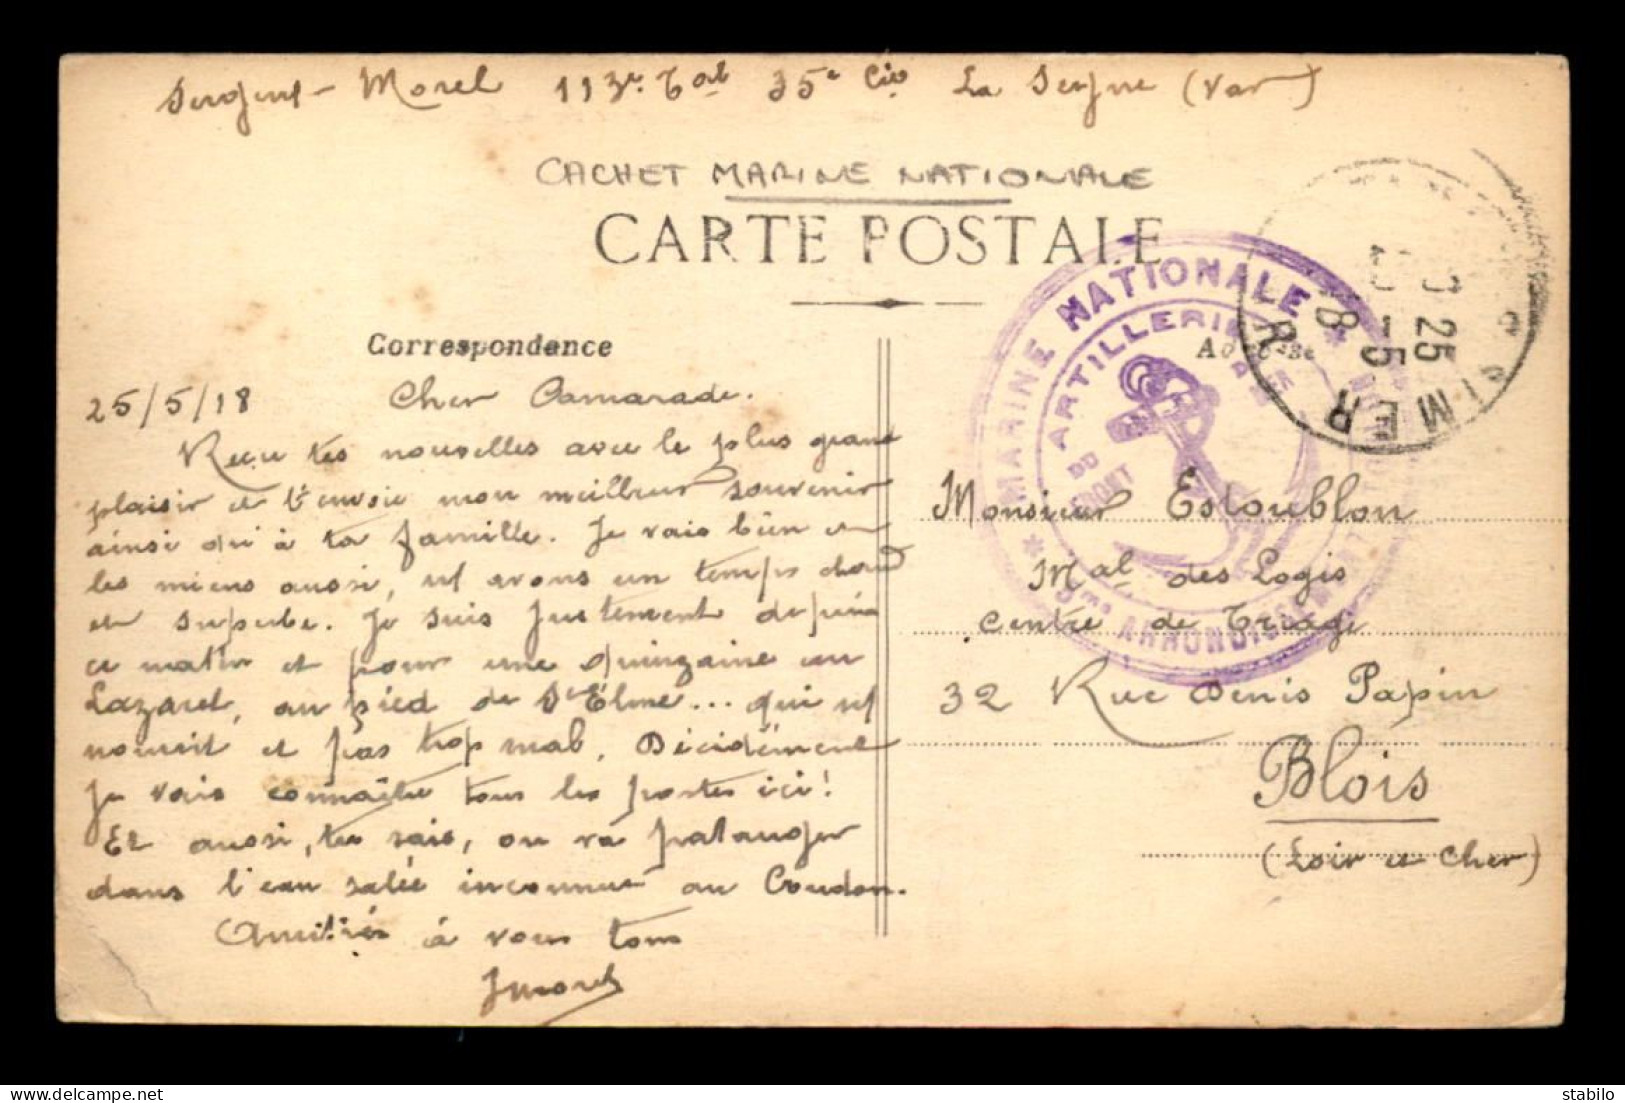 Sergent - Morel 113e Bat 35e Cie La Seyne (Var)
CACHET MARINE NATIONALE
CARTE POSTALE
Correspondance
MARINE NATIONALE
ARTILLERIE
DU FRONT
5me ARRONDISSEMENT
9 25
-5
18
S MER
25/5/18 Cher Camarade.
Reçu tes nouvelles avec le plus grand
plaisir et t'envoie mon meilleur souvenir
ainsi qu'à ta famille. Je vais bien et
les miens aussi, ns avons un temps chaud
et superbe. Je suis justement depuis
ce matin et pour une quinzaine au
Lazaret, au pied de St Elme... qui ns
nourrit et pas trop mal. Décidément
je vais connaître tous les postes ici!
Et aussi, tu sais, on va patauger
dans l'eau salée inconnue au Coudon.
Amitiés à vous tous
JMorel
Monsieur Estoublon
Mal des Logis
Centre de Triage
32 Rue Denis Papin
Blois
(Loir et Cher)
stabilo